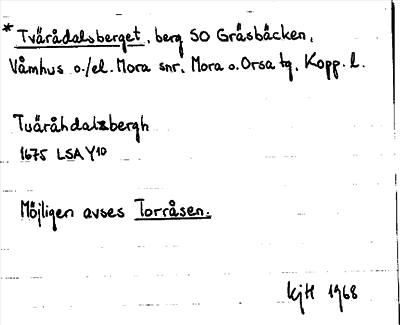 * Tvärådalsberget, berg SO Gräsbäcken,
Våmhus o./el. Mora snr, Mora o. Orsa tg, Kopp. l.
Tuäråhdalsbergh
1675 LSA Y10
Möjligen avses Torråsen.
kjH 1968